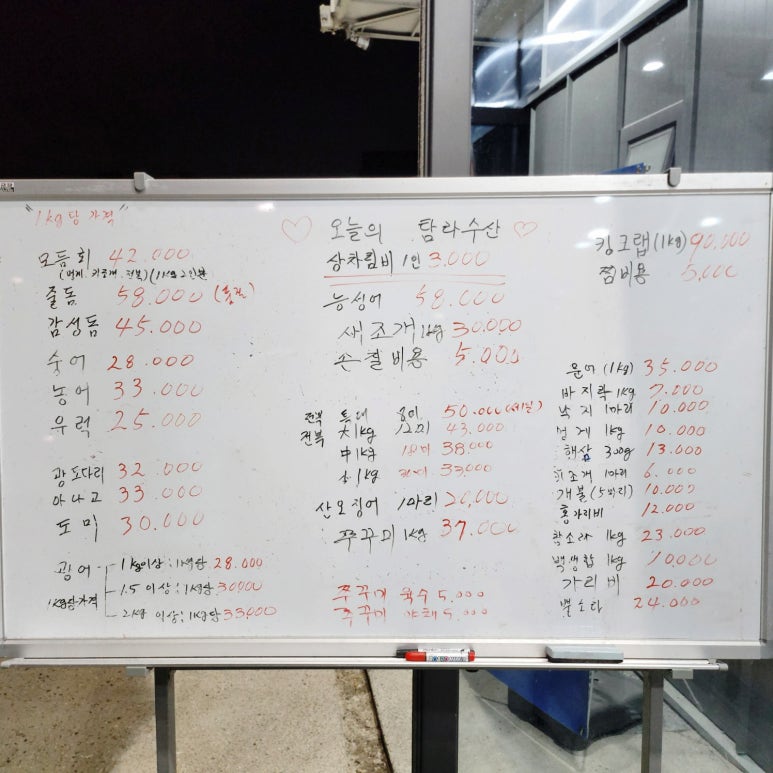 "1kg당 가격"
모듬회 42.000
줄돔 58.000
감성돔 45.000
숭어 28.000
농어 33.000
우럭 25.000
광도다리 32.000
아나고 33.000
도미 30.000
광어
1kg당가격
1kg이상: 1kg당 28.000
1.5 이상: 1kg당 30000
2kg 이상: 1kg당 33000
♡ 오늘의 탐라수산 ♡
상차림비 1인 3.000
능성어 58.000
새조개 1kg 30.000
손질비용 5.000
전복 특대 50.000
전복 大1kg 43.000
中1kg 38.000
小1kg 33.000
산오징어 1마리 20,000
쭈꾸미 1kg 37.000
쭈꾸미 육수 5.000
쭈꾸미 야채 5.000
킹크랩(1kg) 90.000
찜비용 5.000
문어(1kg) 35.000
바지락 1kg 7.000
낙지 1마리 10.000
성게 1kg 10.000
해삼 300g 13.000
1마리 6.000
개불(5마리) 10.000
홍가리비 12.000
참소라 1kg 23.000
백생합 1kg 10.000
가리비 20.000
뿔소라 24.000